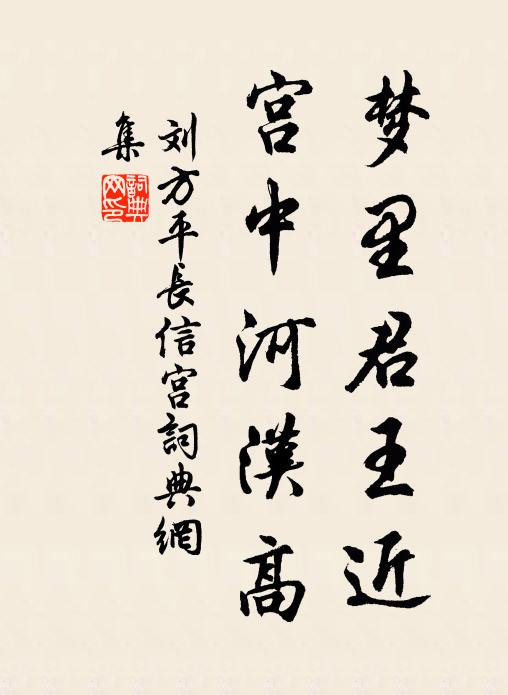 梦里君王近
宫中河漢高
刘方平長信宫詞典網
集
詞典網印